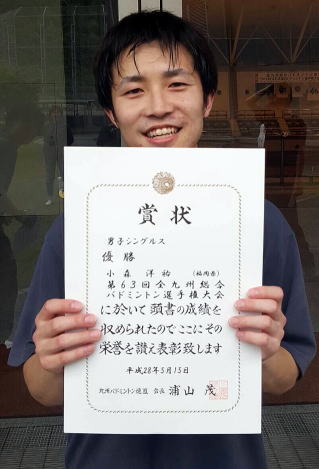 賞状
男子シングルス
優勝
小森洋祐 (福岡県)
第63回全九州総合
バドミントン選手権大会
に於いて頭書の成績を
収められたのでここにその
栄誉を讃え表彰致します
平成28年5月15日
九州バドミントン連盟 会長 浦山茂